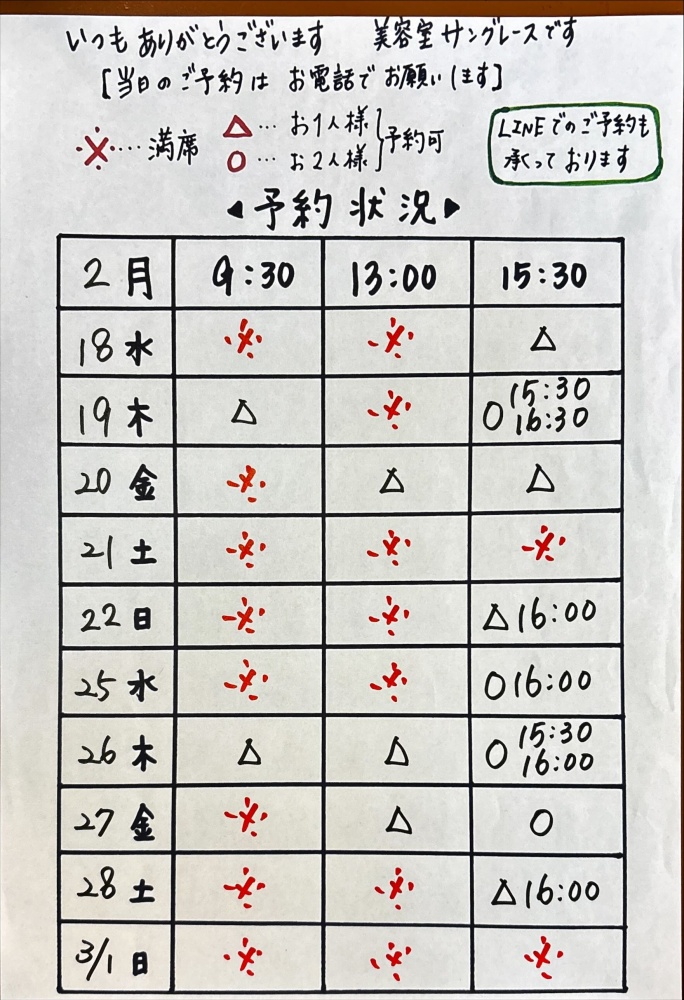 いつもありがとうございます 美容室サングレースです
[当日のご予約は お電話でお願いします]
※…満席
△…お1人様
○…お2人様
予約可
LINEでのご予約も
承っております
◀予約状況▶
2月 9:30 13:00 15:30
18水 ※ ※ △
19木 △ ※ ○15:30 16:30
20金 ※ △ △
21土 ※ ※ ※
22日 ※ ※ △16:00
25水 ※ ※ ○16:00
26木 △ △ ○15:30 16:00
27金 ※ △ ○
28土 ※ ※ △16:00
3/1日 ※ ※ ※